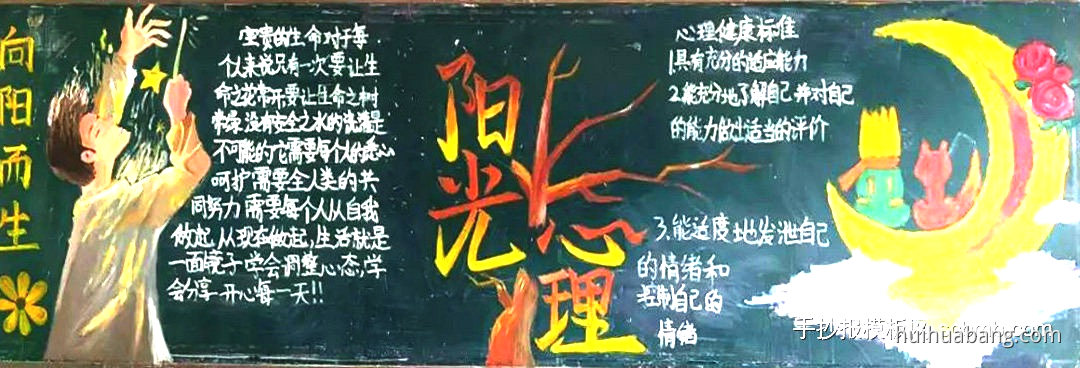 向阳而生
宝贵的生命对于每
个人来说只有一次要让生
命之花常开要让生命之树
常绿 没有安全之水的浇灌是
不可能的它需要每个人的悉心
呵护需要全人类的共
同努力 需要每个人从自我
做起,从现在做起,生活就是
一面镜子 学会调整心态,学
会分享 开心每一天!!
阳光心理
心理健康标准
1.具有充分的适应能力
2.能充分地了解自己 并对自己
的能力做出适当的评价
3.能适度地发泄自己
的情绪和
控制自己的
情绪
手抄报模板网
huihuabang.com